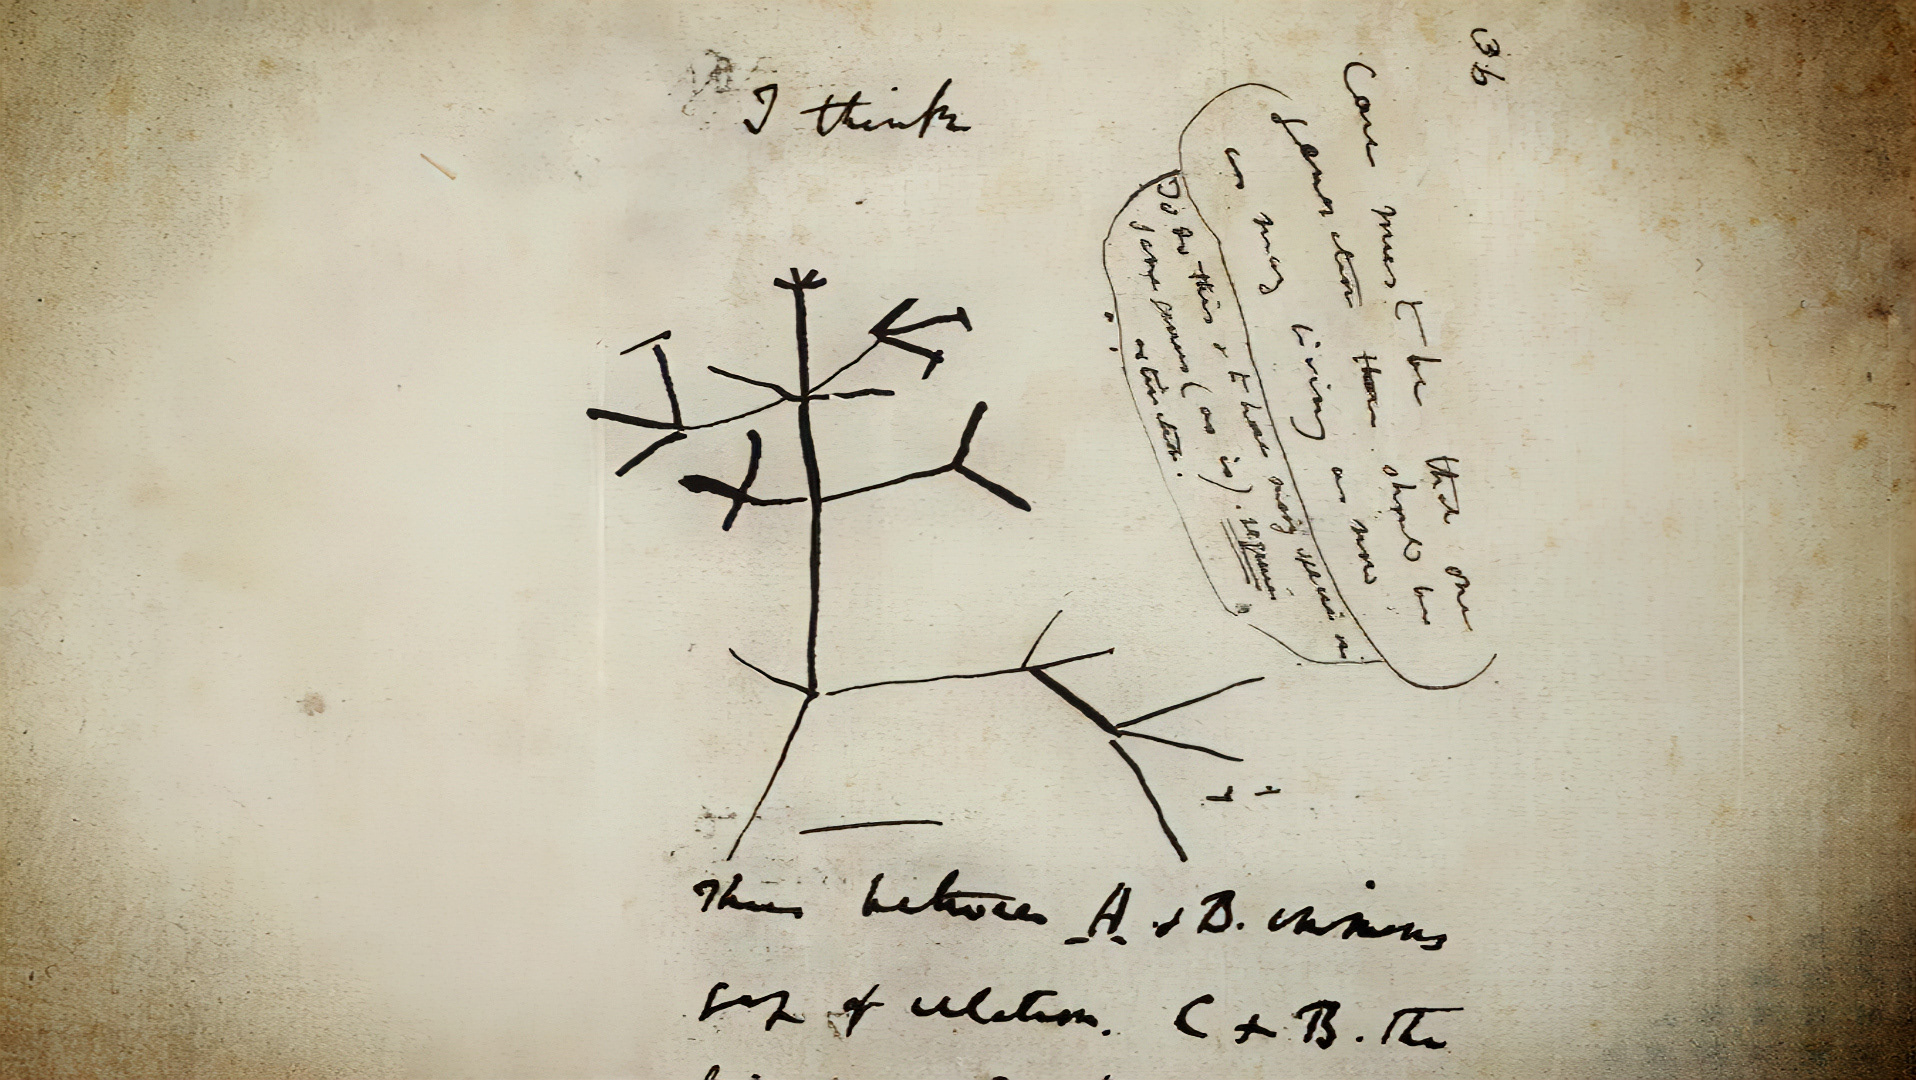 I think
36
Case must be that one
generation then should be
as many living as now
To do this & to have many species in
same genus (as is). requires
extinction.
Thus between A & B. immens
gap of relation. C & B. The